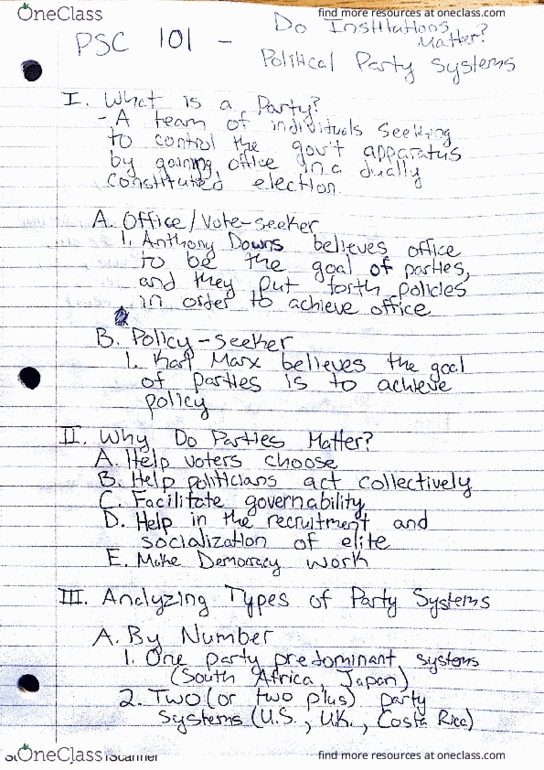 OneClass
find more resources at oneclass.com
PSC 101 - Do Institutions Matter?
Political Party Systems
I. What is a Party?
- A team of individuals seeking
to control the gov't apparatus
by gaining office in a dually
constituted election.
A. Office/Vote-seeker
1. Anthony Downs believes office
to be the goal of parties,
and they put forth policies
in order to achieve office
B. Policy-seeker
1. Karl Marx believes the goal
of parties is to achieve
policy
II. Why Do Parties Matter?
A. Help voters choose
B. Help politicians act collectively
C. Facilitate governability
D. Help in the recruitment and
socialization of elite
E. Make Democracy work
III. Analyzing Types of Party Systems
A. By Number
1. One party predominant systems
(South Africa, Japan)
2. Two (or two plus) party
systems (U.S., U.K., Costa Rica)
OneClass
find more resources at oneclass.com